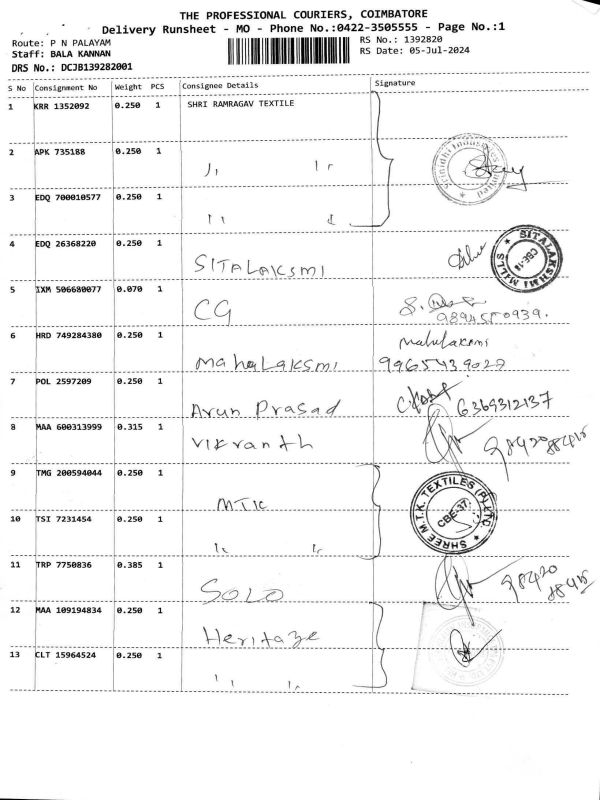 THE PROFESSIONAL COURIERS, COIMBATORE
Delivery Runsheet - MO - Phone No.:0422-3505555 - Page No.:1
Route: P N PALAYAM
RS No.: 1392820
Staff: BALA KANNAN
RS Date: 05-Jul-2024
DRS No.: DCJB139282001
S No Consignment No Weight PCS Consignee Details Signature
1 KRR 1352092 0.250 1 SHRI RAMRAGAV TEXTILE
2 APK 735188 0.250 1
3 EDQ 700010577 0.250 1
4 EDQ 26368220 0.250 1
SITALAKSMI
SITALAKSHMI MILLS
5 IXM 506680077 0.070 1
CG
9894550939.
6 HRD 749284380 0.250 1
MahaLaksmi
Mahalaksmi
9965439029
7 POL 2597209 0.250 1
Arun Prasad
6369312137
8 MAA 600313999 0.315 1
Vikranth
98420 88415
9 TMG 200594044 0.250 1
MTK
SHREE M.T.K. TEXTILES (P) LTD
CBE-37.
10 TSI 7231454 0.250 1
11 TRP 7750836 0.385 1
SOLO
98420
88415
12 MAA 109194834 0.250 1
Heritage
13 CLT 15964524 0.250 1